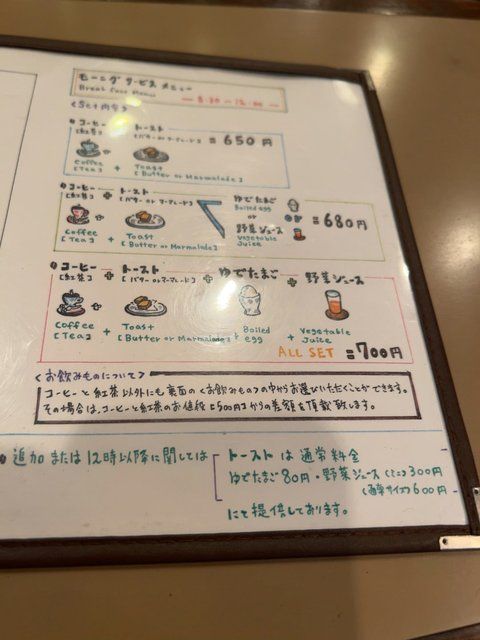 モーニング サービス メニュー
Break fast Menu
― 8:30 - 12:00 ―
<Set内容>
コーヒー
[紅茶] + トースト
[バター or マーマレード] = 650円
Coffee
[Tea] + Toast
[Butter or Marmalade]
コーヒー
[紅茶] + トースト
[バター or マーマレード] ゆでたまご
Boiled egg
or
野菜ジュース
Vegetable
Juice
or = 680円
Coffee
[Tea] + Toast
[Butter or Marmalade]
コーヒー + トースト + ゆでたまご + 野菜ジュース
[紅茶] [バター or マーマレード]
Coffee + Toast + Boiled + Vegetable
[Tea] [Butter or Marmalade] egg Juice
ALL SET = 700円
<お飲みものについて>
コーヒーと紅茶以外にも裏面の<お飲みもの>の中からお選びいただくことができます。
その場合は、コーヒーと紅茶のお値段[500円]からの差額を頂戴致します。
追加または12時以降に関しては
トーストは通常料金
ゆでたまご80円・野菜ジュース(ミニ)300円
(通常サイズ)600円
にて提供しております。